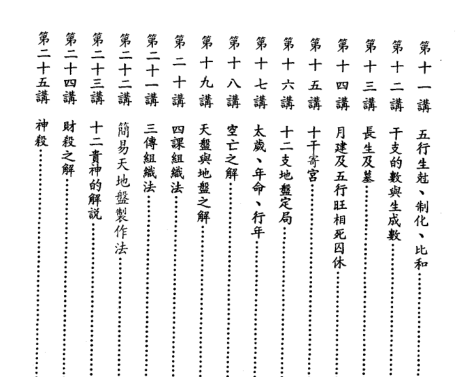 第十一講　五行生尅、制化、比和………………
第十二講　干支的數與生成數………………
第十三講　長生及墓………………
第十四講　月建及五行旺相死囚休………………
第十五講　十干寄宮………………
第十六講　十二支地盤定局………………
第十七講　太歲、年命、行年………………
第十八講　空亡之解………………
第十九講　天盤與地盤之解………………
第二十講　四課組織法………………
第二十一講　三傳組織法………………
第二十二講　簡易天地盤製作法………………
第二十三講　十二貴神的解說………………
第二十四講　財殺之解………………
第二十五講　神殺………………